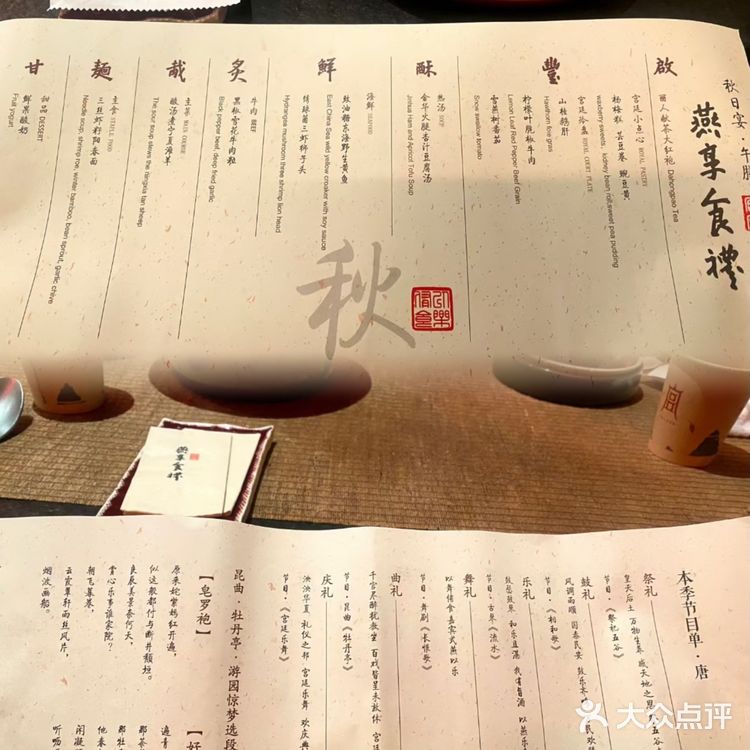 燕享食禮
秋日宴·午膳
啟
丽人献茶大红袍 Dahongpao Tea
豐
宫廷小点心 ROYAL PASTRY
杨梅粒 芸豆卷 豌豆黄
waxberry sweets; kidney bean roll,sweet pea pudding
宫廷冷盘 ROYAL COURT PLATE
山楂鹅肝
Hawthorn foie gras
柠檬叶脆椒牛肉
Lemon Leaf Red Pepper Beef Grain
雪燕树番茄
Snow swallow tomato
酥
热汤 SOUP
金华火腿杏汁豆腐汤
Jinhua Ham and Apricot Tofu Soup
鮮
海鲜 SEAFOOD
豉油糖东海野生黄鱼
East China Sea wild yellow croaker with soy sauce
绣球菌三虾狮子头
Hydrangea mushroom three shrimp lion head
炙
牛肉 BEEF
黑松雪花牛肉粒
Black pepper beef, deep fried garlic
哉
主菜 MAIN COURSE
酸汤煮宁夏滩羊
The sour soup stews the ningxia tan sheep
麵
主食 STAPLE FOOD
三丝虾籽阳春面
Noodle soup, shrimp roe, winter bamboo, bean sprout, garlic chive
甘
甜品 DESSERT
鲜果酸奶
Fruit yogurt
秋
燕享食禮
本季节目单·唐
祭礼
节目·《祭祀五谷》
鼓礼
风调雨顺 国泰民安
节目·《相和歌》
乐礼
节目·古琴《流水》
舞礼
以舞侑食
节目·舞剧《长恨歌》
曲礼
节目·昆曲《牡丹亭》
庆礼
泱泱华夏 礼仪之邦 宫廷乐舞
节目·《宫廷乐舞》
昆曲·牡丹亭·游园惊梦选段
【皂罗袍】
原来姹紫嫣红开遍,
似这般都付与断井颓垣。
良辰美景奈何天,
赏心乐事谁家院?
朝飞暮卷,
云霞翠轩雨丝风片,
烟波画船。
【好
遍青
那茶
那牡
他春
闲凝
听呖
大众点评